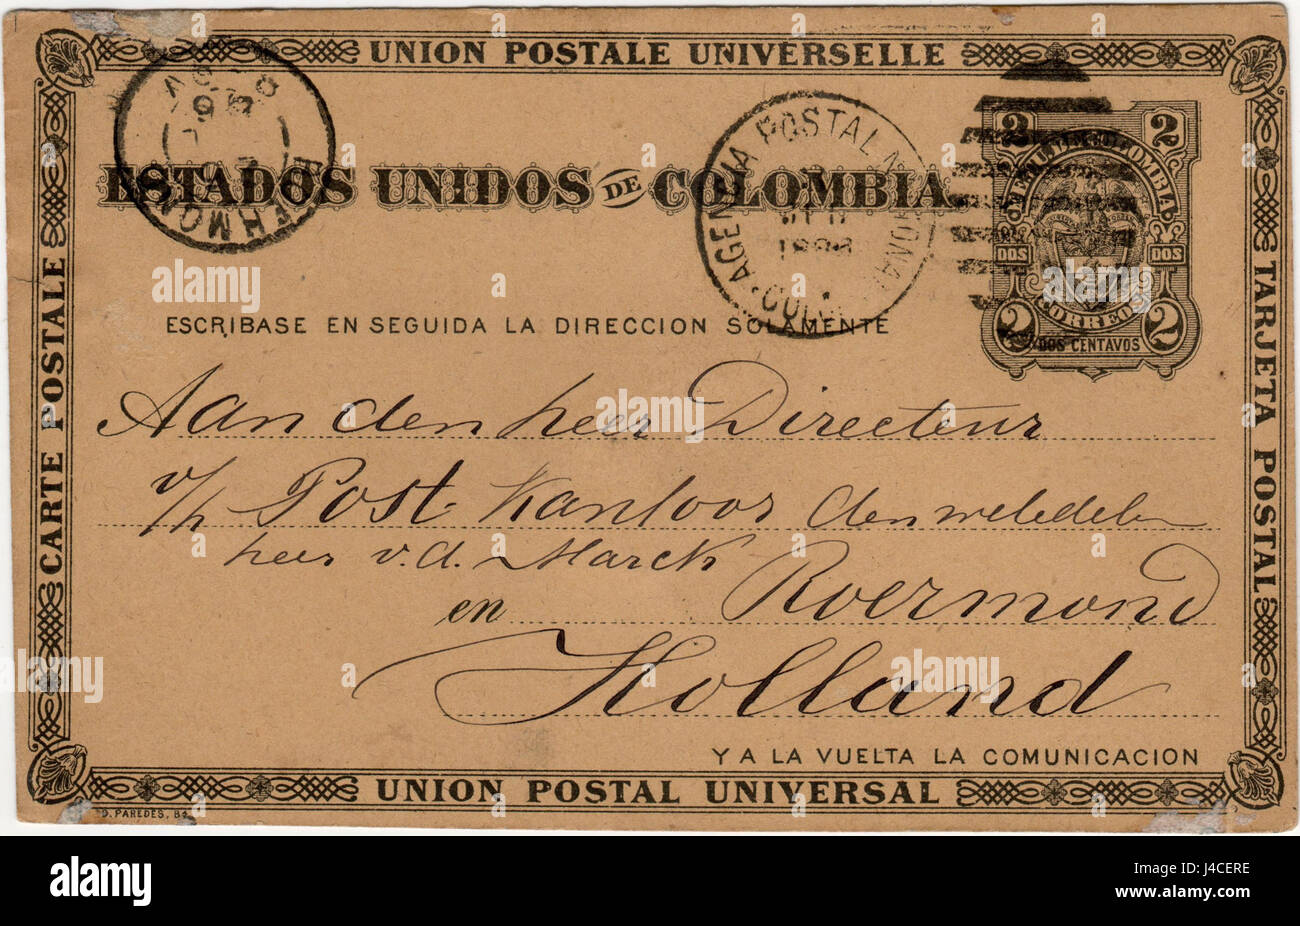 UNION POSTALE UNIVERSELLE
ESTADOS UNIDOS DE COLOMBIA
AGENCIA POSTAL NACIONAL
1898
2 2
COLOMBIA
DOS DOS
CORREOS
2 2
DOS CENTAVOS
ESCRIBASE EN SEGUIDA LA DIRECCION SOLAMENTE
CARTE POSTALE
TARJETA POSTAL
Aan den heer Directeur
v/h Post Kantoor den
heer v.d. Marck Roermond
en
Holland
Y A LA VUELTA LA COMUNICACION
UNION POSTAL UNIVERSAL
D. PAREDES,
alamy
alamy
Image ID: J4CERE
www.alamy.com